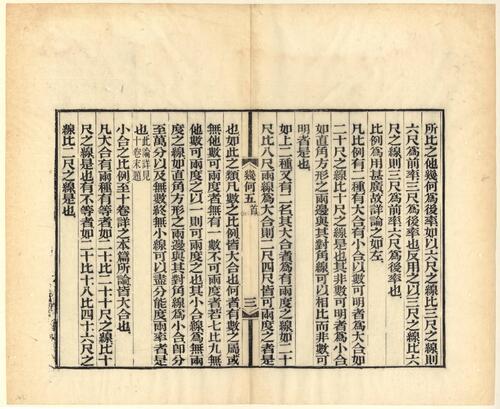 所比之他幾何爲後率如以六尺之線比三尺之線則
六尺爲前率三尺爲後率也反用之以三尺之線比六
尺之線則三尺爲前率六尺爲後率也
比例爲用甚廣故詳論之如左
凡比例有二種有大合有小合以數可明者爲大合如
二十尺之線比十尺之線是也其非數可明者爲小合
如直角方形之兩邊與其對角線可以相比而非數可
明者是也
如上二種又有二名其大合者爲有兩度之線如二十
尺比八尺兩線爲大合則二尺四尺皆可兩度之者是
幾何五 首
三
也如此之類凡數之比例皆大合也何者有數之屬或
無他數可兩度者無有一數不可兩度者若七比九無
他數可兩度之以一則可兩度之也其小合線爲無兩
度之線如直角方形之兩邊與其對角線爲小合卽分
至萬分以及無數終無小線可以盡分能度兩率者是
也此論詳見
十卷末題
小合之比例至十卷詳之本篇所論皆大合也
凡大合有兩種有等者如二十比二十十尺之線比十
尺之線是也有不等者如二十比十八比四十六尺之
線比二尺之線是也